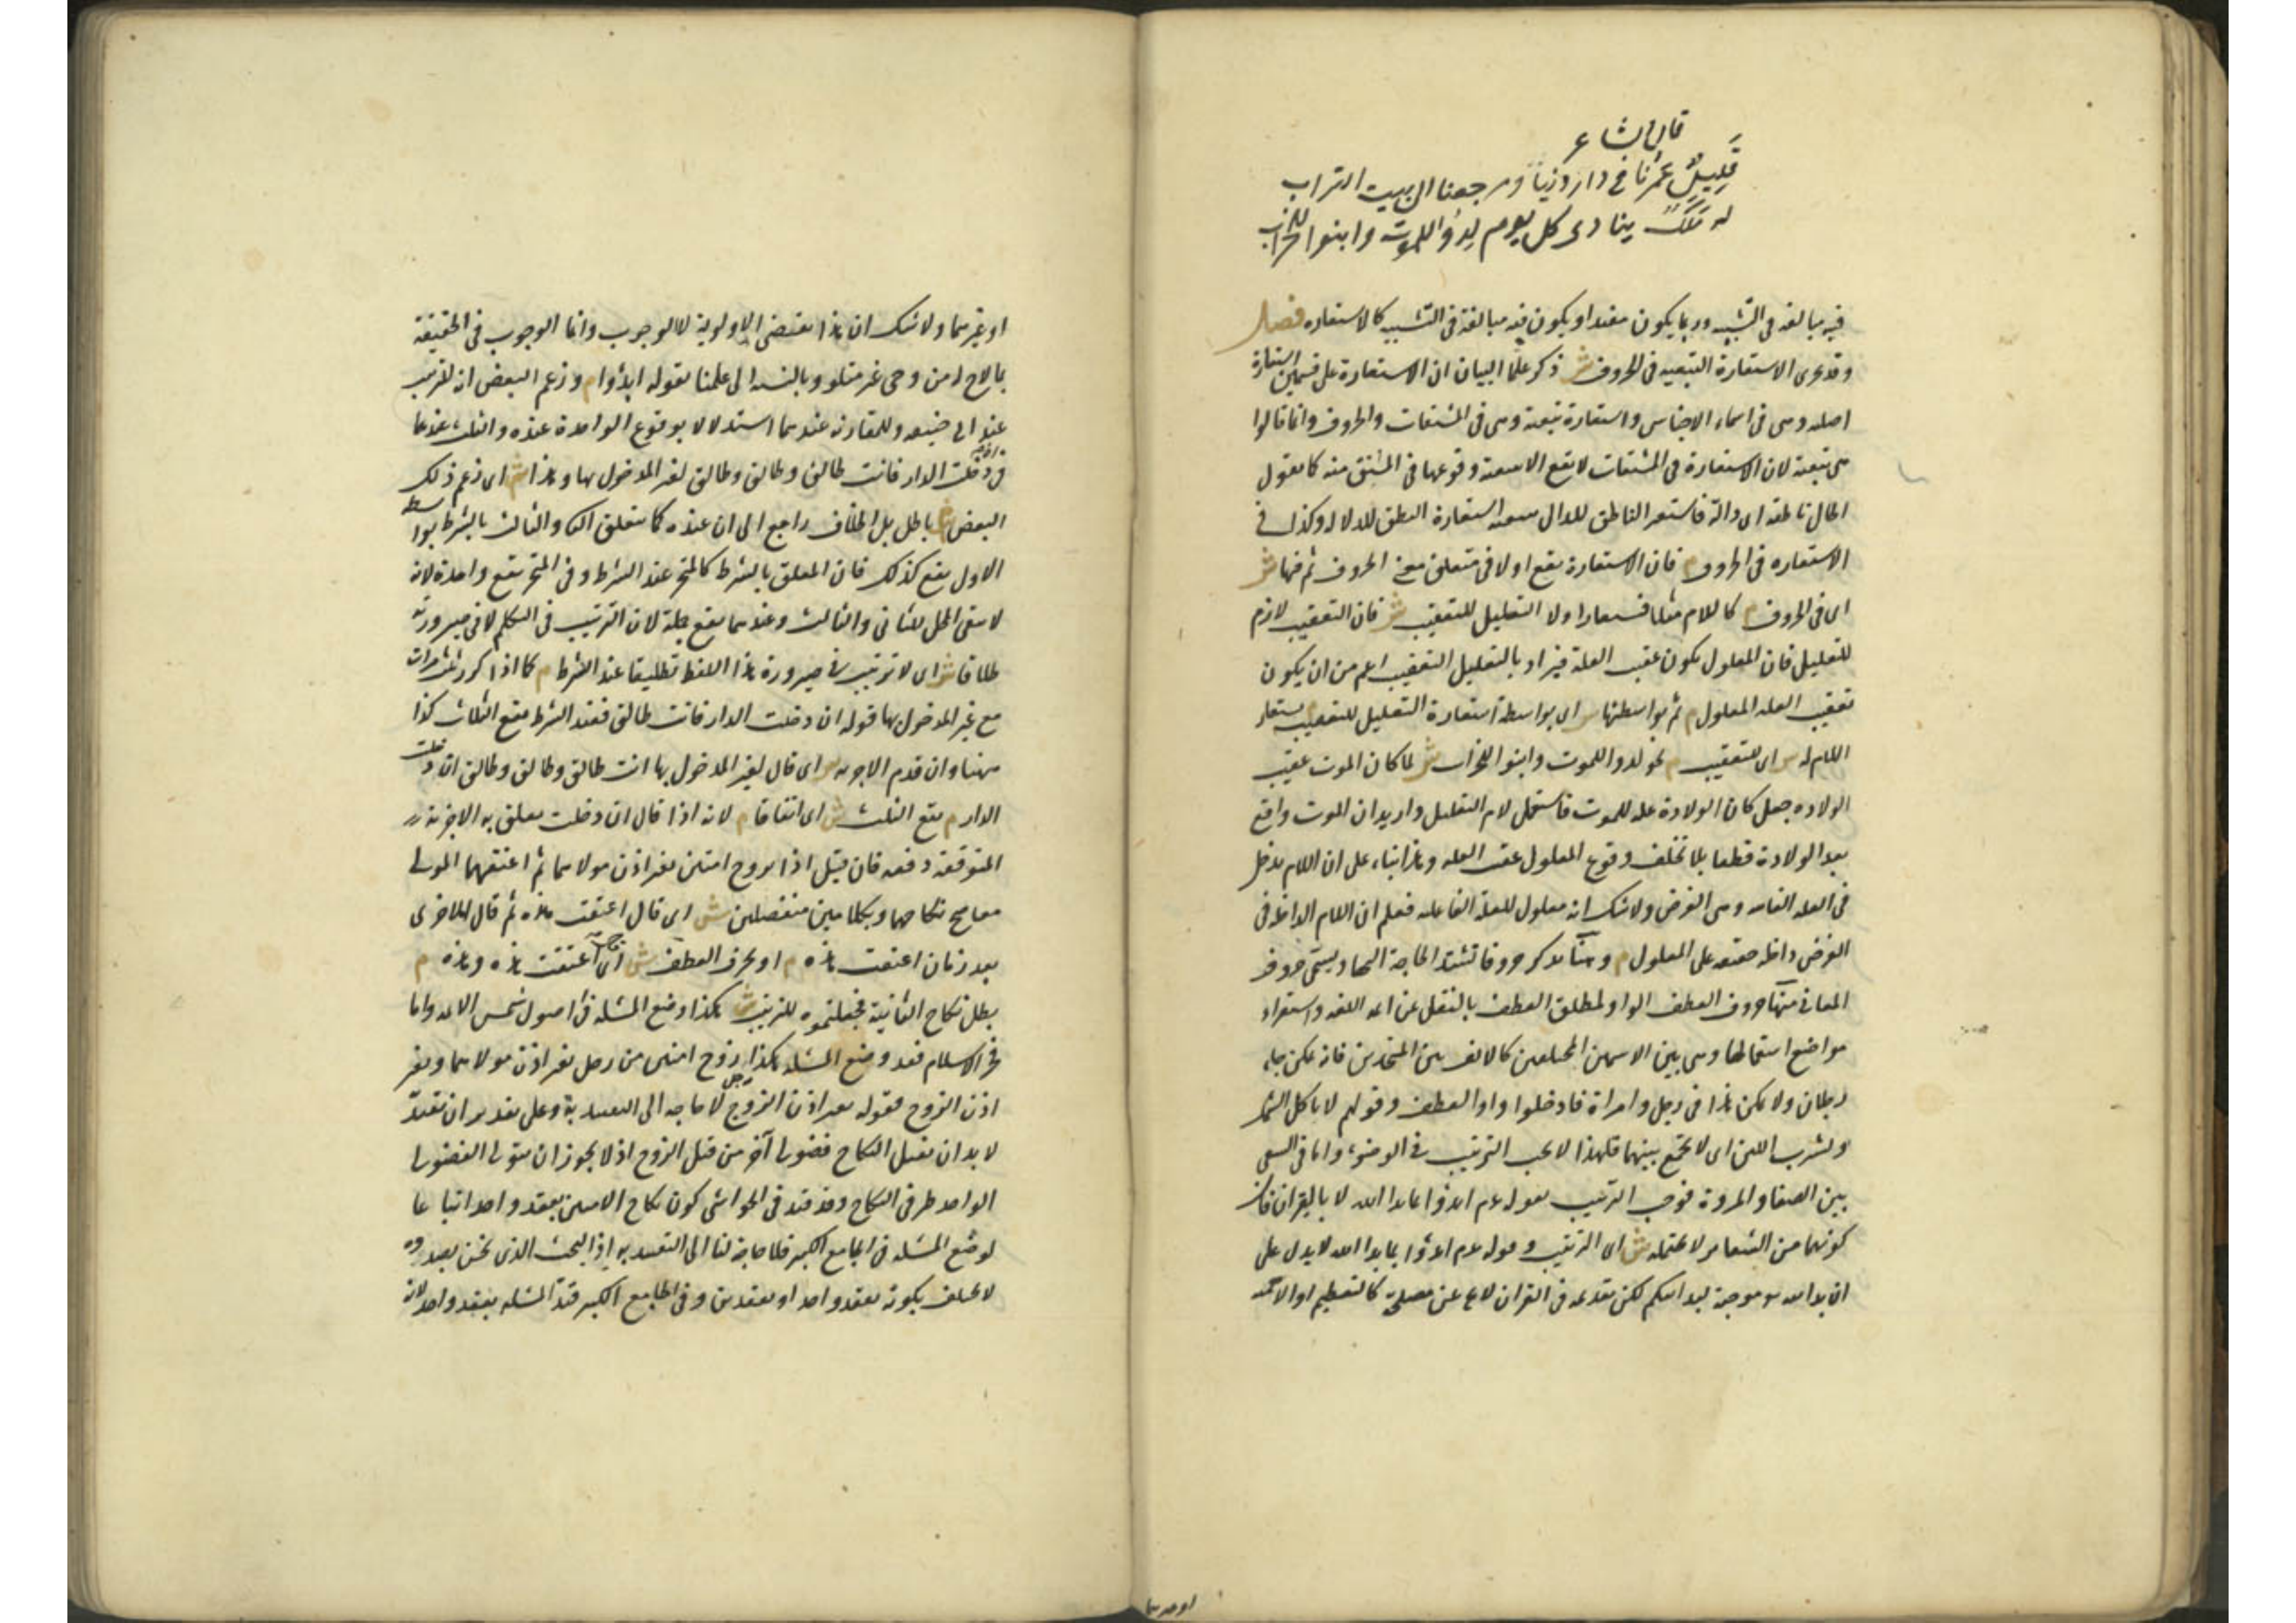 قال الشاعر
قَلِيلٌ عمرُنا في دار دنيا ومرجعنا الى بيت التراب
له مَلَكٌ ينادى كل يوم لِدُوا للموت وابنوا للخراب
فيه مبالغه فى التشبيه وربما يكون مفيدا ويكون فيه مبالغة فى التشبيه كالاستعاره فصل
وقد تجرى الاستعارة التبعيه فى الحروف ش ذكر علما البيان ان الاستعارة على قسمين استعارة
اصليه وهى فى اسماء الاجناس واستعارة تبعية وهى فى المشتقات والحروف وانما قالوا
هى تبعية لان الاستعارة فى المشتقات لا تقع الا بتبعية وقوعها فى المشتق منه كما تقول
الحال ناطقه اى دالة فاستعير الناطق للدال بتبعية استعارة النطق للدلاله وكذلك فى
الاستعاره فى الحروف م فان الاستعارة تقع اولا فى متعلق معنى الحروف ثم فيها ش
اى فى الحروف م كاللام مثلا فيستعار اولا التعليل للتعقيب ش فان التعقيب لازم
للتعليل فان المعلول يكون عقيب العلة فيراد بالتعليل التعقيب اعم من ان يكون
تعقيب العله المعلول م ثم بواسطتها ش اى بواسطة استعارة التعليل للتعقيب يستعار
اللام له ش اى للتعقيب م نحو لدوا للموت وابنوا للخراب ش لما كان الموت عقيب
الولاده جعل كان الولادة عله للموت فاستعمل لام التعليل واريد ان الموت واقع
بعد الولادة قطعا بلا تخلف وقوع المعلول عقب العله وهذا بناء على ان اللام يدخل
فى العله الغائيه وهى الغرض ولا شك انه معلول للعلة الفاعليه فعلم ان اللام الداخله فى
الغرض داخله حقيقه على المعلول م وهنا نذكر حروفا تشتد الحاجة اليها ويسمى حروف
المعانى منها حروف العطف الواو لمطلق العطف بالنقل عن ائمه اللغه واستقراء
مواضع استعمالها وهى بين الاسمين المختلفين كالالف بين المتحدين فانه يمكن جاء
رجلان ولا يمكن هذا فى رجل وامراة فادخلوا واو العطف وقولهم لا تاكل السمك
وتشرب اللبن اى لا تجمع بينهما فلهذا لا يجب الترتيب فى الوضوء واما فى السعى
بين الصفا والمروة فوجب الترتيب بقوله عم ابدؤا بما بدا الله لا بالقران فان
كونهما من الشعاير لا يحتمله ش اى الترتيب وقوله عم ابدؤا بما بدا الله لا يدل على
ان بداية الله موجبة لبدايتكم لكن تقديمه فى القران لا يخ عن مصلحة كالتعظيم او الاهمية
او غيرهما ولا شك ان هذا يقتضى الاولوية لا الوجوب وانما الوجوب فى الحقيقة
بما لاح له من وحى غير متلو وبالنسبة الى علمنا بقوله ابدؤا م وزعم البعض انه للترتيب
عند ابى حنيفه وللمقارنه عندهما استدلالا بوقوع الواحدة عنده والثلث عندهما
فى ان دخلت الدار فانت طالق وطالق وطالق لغير المدخول بها وهذا ش اى زعم ذلك
البعض م باطل بل الخلاف راجع الى ان عنده كما يتعلق الثانى والثالث بالشرط بواسطه
الاول يقع كذلك فان المعلق بالشرط كالمنجز عند الشرط وفى المنجز تقع واحدة لانه
لا يبقى المحل للثانى والثالث وعندهما يقع جملة لان الترتيب فى التكلم لا فى صيرورته
طلاقا ش اى لا ترتيب فى صيرورة هذا اللفظ تطليقا عند الشرط م كما اذا كرر ثلث مرات
مع غير المدخول بها قوله ان دخلت الدار فانت طالق فعند الشرط يقع الثلاث كذا
ههنا وان قدم الاجزيه ش اى قال لغير المدخول بها انت طالق وطالق وطالق ان دخلت
الدار م يقع الثلث ش اى اتفاقا م لانه اذا قال ان دخلت يتعلق به الاجزية
المتوقفه دفعه فان قيل اذا تزوج امتين بغير اذن مولاهما ثم اعتقهما المولى
معا صح نكاحهما وبكلامين منفصلين ش اى قال اعتقت هذه ثم قال للاخرى
بعد زمان اعتقت هذه م او بحرف العطف ش اى اعتقت هذه وهذه م
بطل نكاح الثانية فجعلتموه للترتيب ش هكذا وضع المسئله فى اصول شمس الائمه واما
فخر الاسلام فقد وضع المسئله هكذا زوج امتين من رجل بغير اذن مولاهما وبغير
اذن الزوج فقوله بغير اذن الزوج لا حاجه الى التقييد به وعلى تقدير ان يقيد
لا بد ان يقبل النكاح فضولى آخر من قبل الزوج اذ لا يجوز ان يتولى الفضولى
الواحد طرفى النكاح وقد قيد فى الحواشى كون نكاح الامتين بعقد واحد اتباعا
لوضع المسئله فى الجامع الكبير فلا حاجة لنا الى التقييد به اذ البحث الذى نحن بصدده
لا يختلف بكونه بعقد واحد او بعقدين وفى الجامع الكبير قيد المسئله بعقد واحد لانه